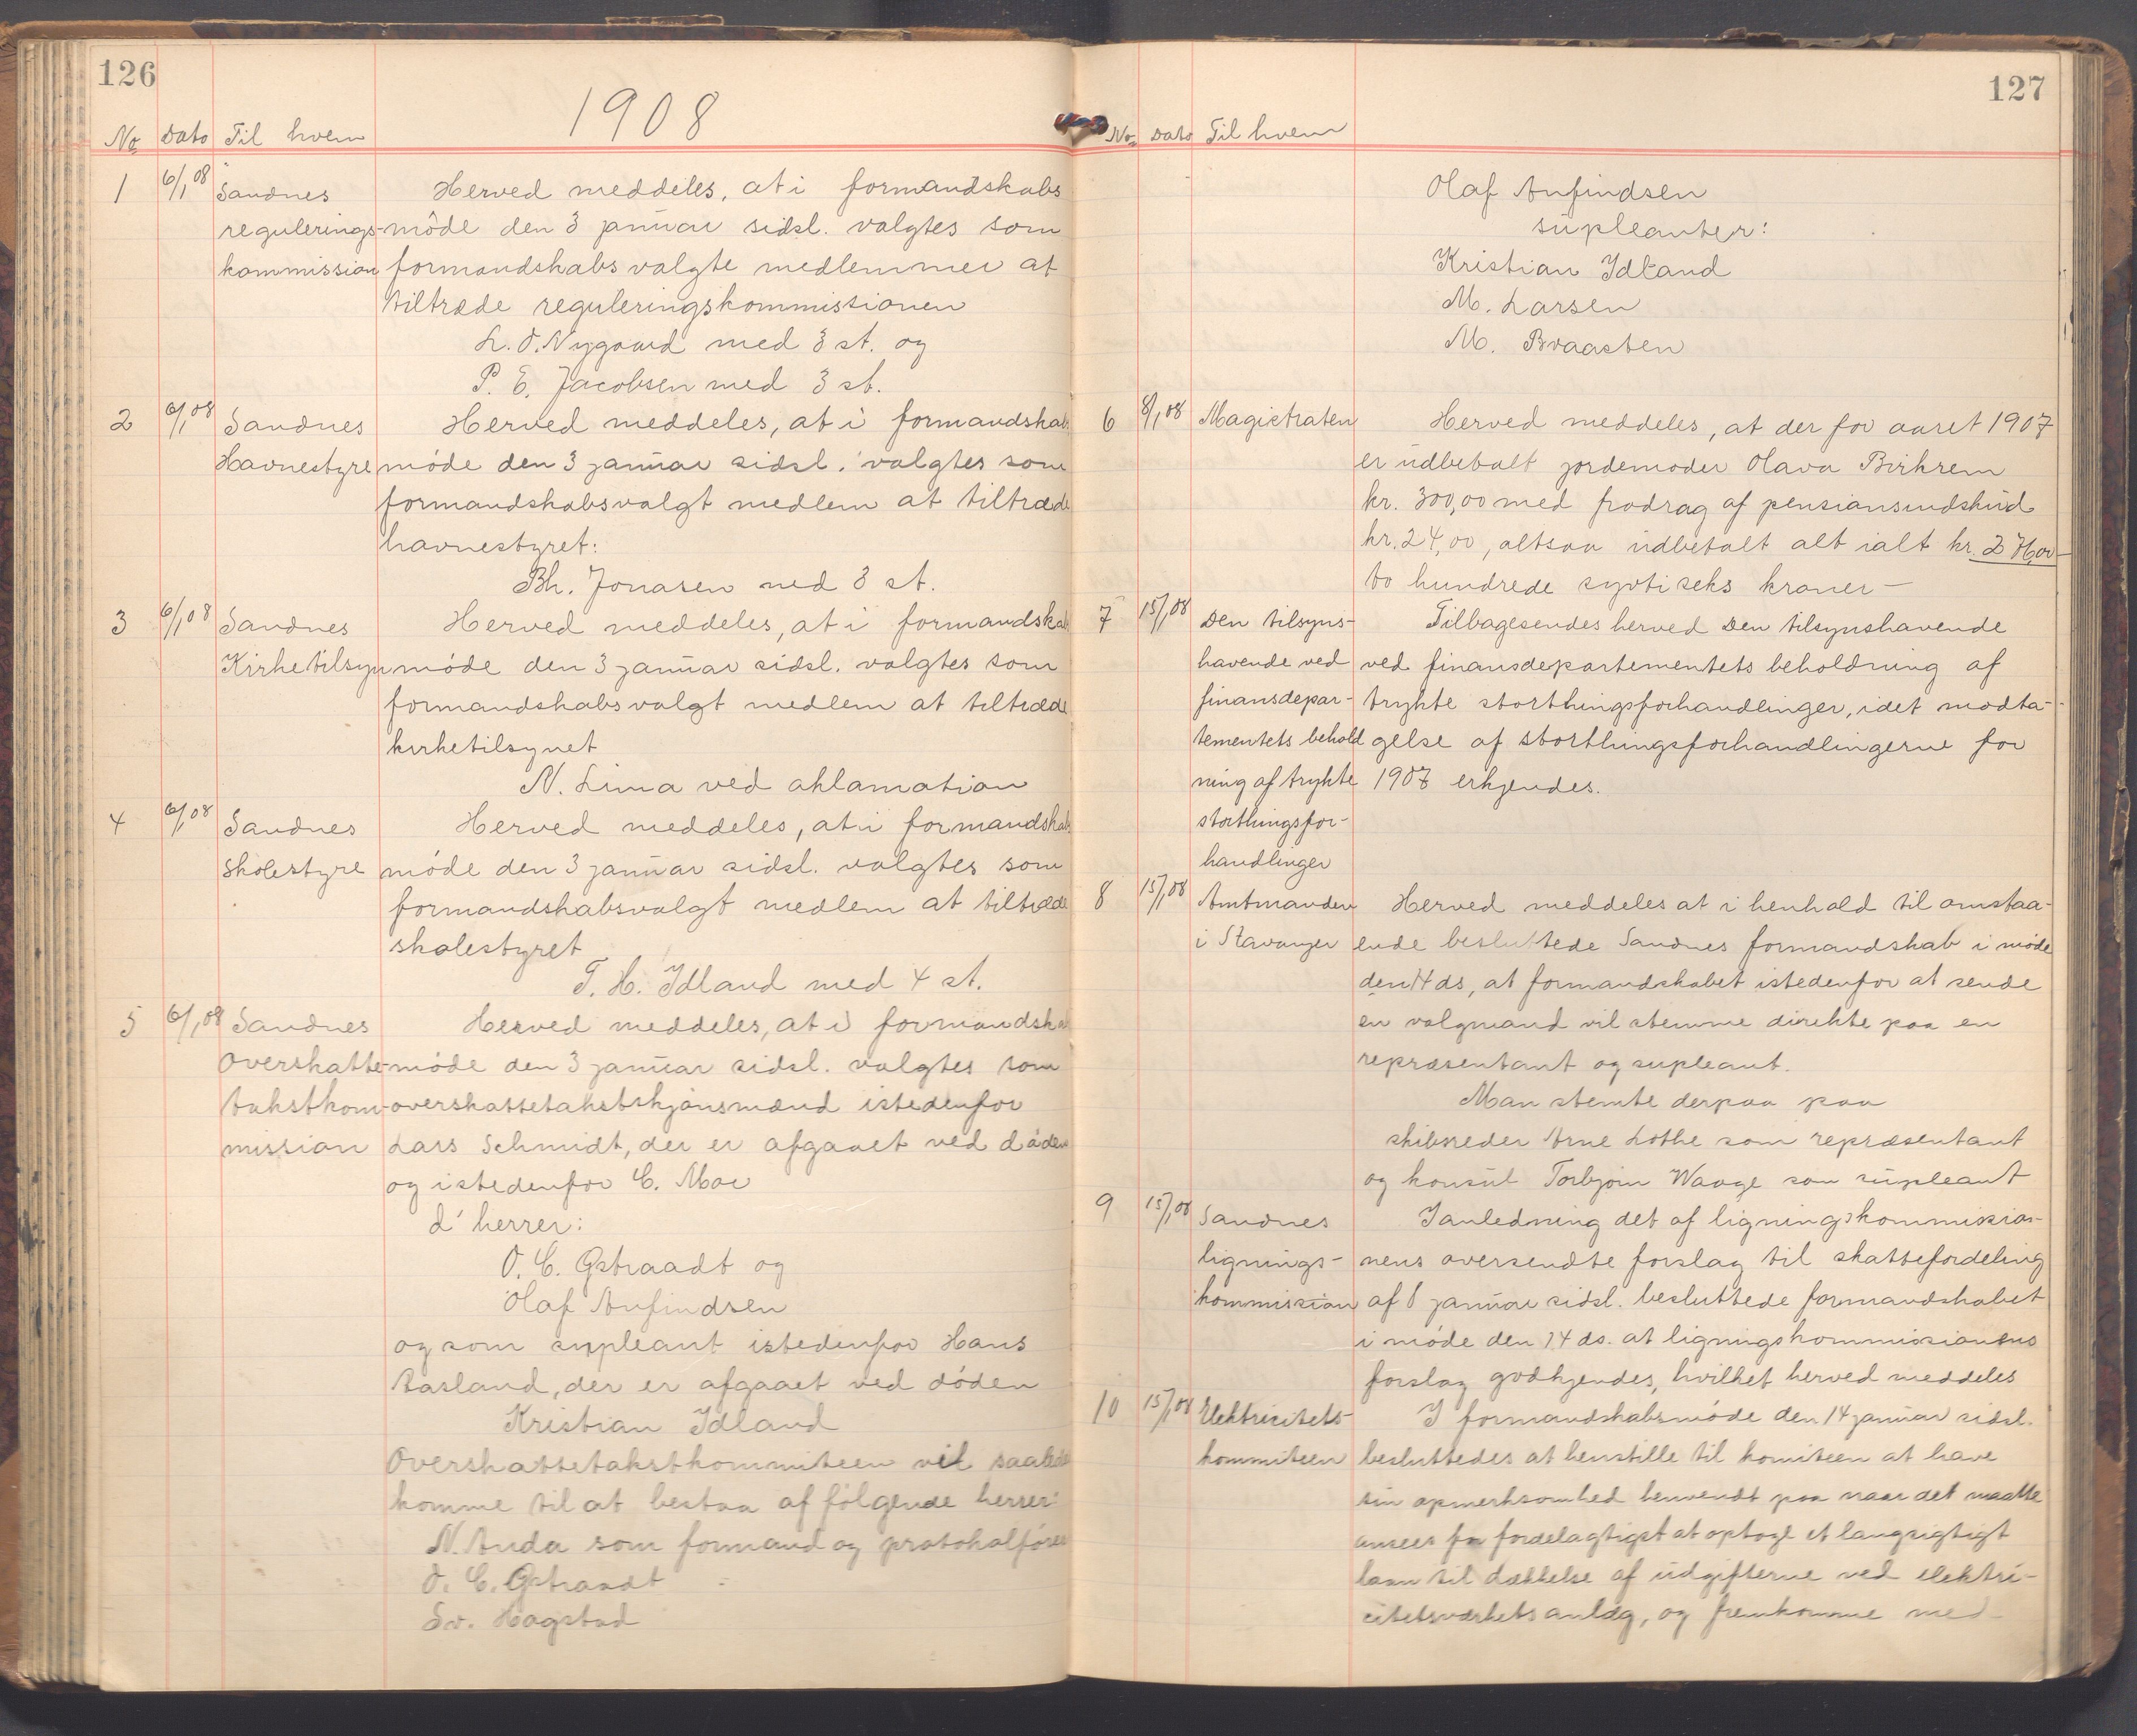 126
1908
No Dato Til hvem
1 6/1 08 Sandnes Herved meddeles, at i formandskabs
regulerings- møde den 3 januar sidsl. valgtes som
kommission formandskabsvalgte medlemmer at
tiltræde reguleringskommissionen
L. O. Nygaard med 3 st. og
P. E. Jacobsen med 3 st.
2 6/1 08 Sandnes Herved meddeles, at i formandskabs
Havnestyre møde den 3 januar sidsl. valgtes som
formandskabsvalgt medlem at tiltræde
havnestyret:
Bh. Jonasen med 3 st.
3 6/1 08 Sandnes Herved meddeles, at i formandskabs
Kirketilsyn møde den 3 januar sidsl. valgtes som
formandskabsvalgt medlem at tiltræde
kirketilsynet
N. Lima ved aklamation
4 6/1 08 Sandnes Herved meddeles, at i formandskabs
Skolestyre møde den 3 januar sidsl. valgtes som
formandskabsvalgt medlem at tiltræde
skolestyret
T. H. Idland med 4 st.
5 6/1 08 Sandnes Herved meddeles, at i formandskabs
Overskatte- møde den 3 januar sidsl. valgtes som
takstkom- overskattetakstskjønsmænd istedenfor
mission Lars Schmidt, der er afgaaet ved døden
og istedenfor C. Moe
d'herrer:
O. C. Gstraadt og
Olaf Anfindsen
og som supleant istedenfor Hans
Aasland, der er afgaaet ved døden
Kristian Idland
Overskattetakstkommiteen vil saaledes
komme til at bestaa af følgende herrer:
N. Anda som formand og protokolfører
O. C. Gstraadt
Sv. Hagstad
127
No. Dato Til hvem
Olaf Anfindsen
supleanter:
Kristian Idland
M. Larsen
M. Braasten
6 8/1 08 Magistraten Herved meddeles, at der for aaret 1907
er udbetalt jordemoder Olava Birkrem
kr. 300,00 med fradrag af pensionsindskud
kr. 24,00, altsaa udbetalt alt ialt kr. 276,00 -
to hundrede sytti seks kroner -
7 15/1 08 Den tilsyns- Tilbagesendes herved Den tilsynshavende
havende ved ved finansdepartementets beholdning af
finansdepar- trykte storthingsforhandlinger, idet modta-
tementets behold gelse af storthingsforhandlingerne for
ning af trykte 1907 erkjendes.
storthingsfor-
handlinger
8 15/1 08 Amtmanden Herved meddeles at i henhold til omstaa-
i Stavanger ende besluttede Sandnes formandskab i møde
den 14 ds, at formandskabet istedenfor at sende
en valgmand vil stemme direkte paa en
repræsentant og supleant.
Man stemte derpaa paa
skibsreder Arne Lothe som repræsentant
og konsul Torbjørn Waage som supleant
9 15/1 08 Sandnes I anledning det af ligningskommissio-
lignings- nens oversendte forslag til skattefordeling
kommission af 8 januar sidsl. besluttede formandskabet
i møde den 14 ds. at ligningskommissionens
forslag godkjendes, hvilket herved meddeles
10 15/1 08 Elektricitets- I formandskabsmøde den 14 januar sidsl.
kommiteen besluttedes at henstille til komiteen at have
sin opmerksomhed henvendt paa naar det maatte
ansees for fordelagtigst at optage et langsigtigt
laan til dækkelse af udgifterne ved elektri-
citetsværkets anlæg, og fremkomme med